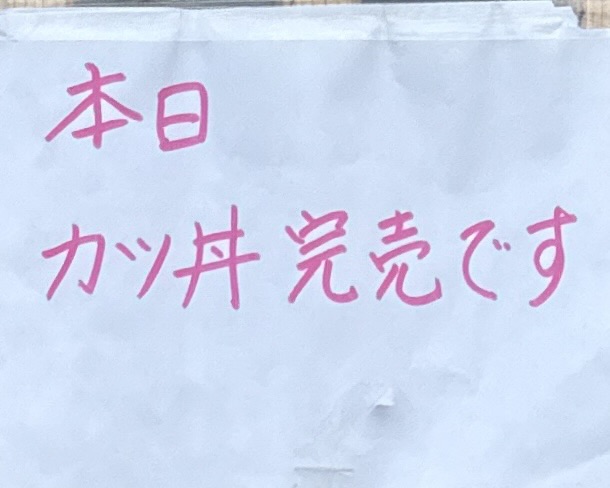 本日
カツ丼 完売です